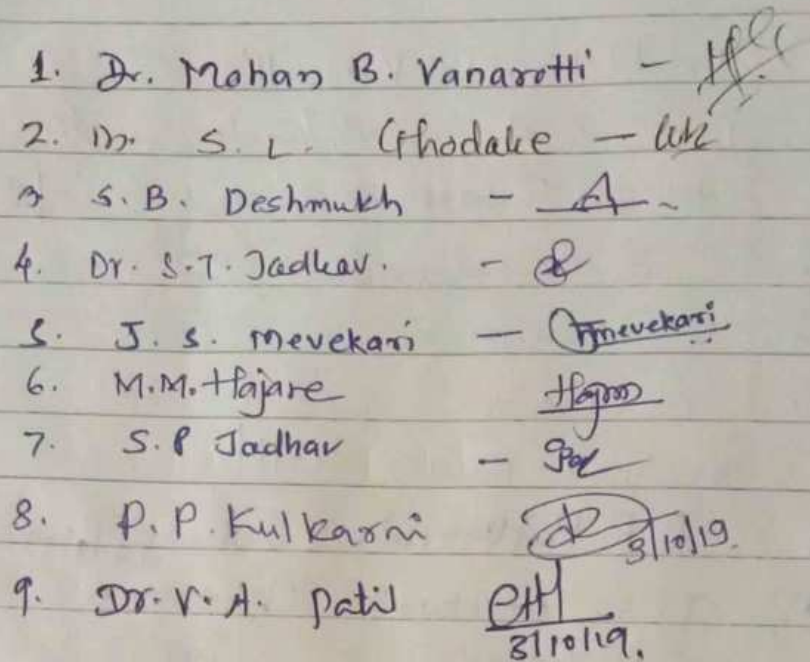 1. Dr. Mohan B. Vanarotti -
2. Dr. S. L. Ghodake -
3 S. B. Deshmukh -
4. Dr. S.T. Jadhav. -
5. J. S. Mevekari - Jmevekari
6. M.M. Hajare
7. S. P Jadhav -
8. P. P. Kulkarni 3/10/19.
9. Dr. V. A. Patil 3/10/19.